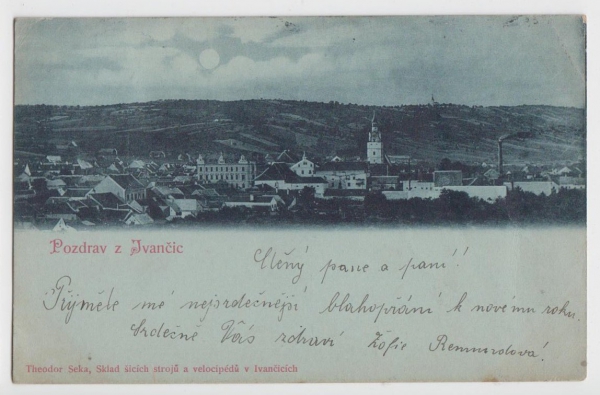 Pozdrav z Ivančic
Ctěný pane a paní!
Přijměte mé nejsrdečnější blahopřání k novému roku.
Srdečně Vás zdraví Žofie
Theodor Seka, Sklad šicích strojů a velocipédů v Ivančicích